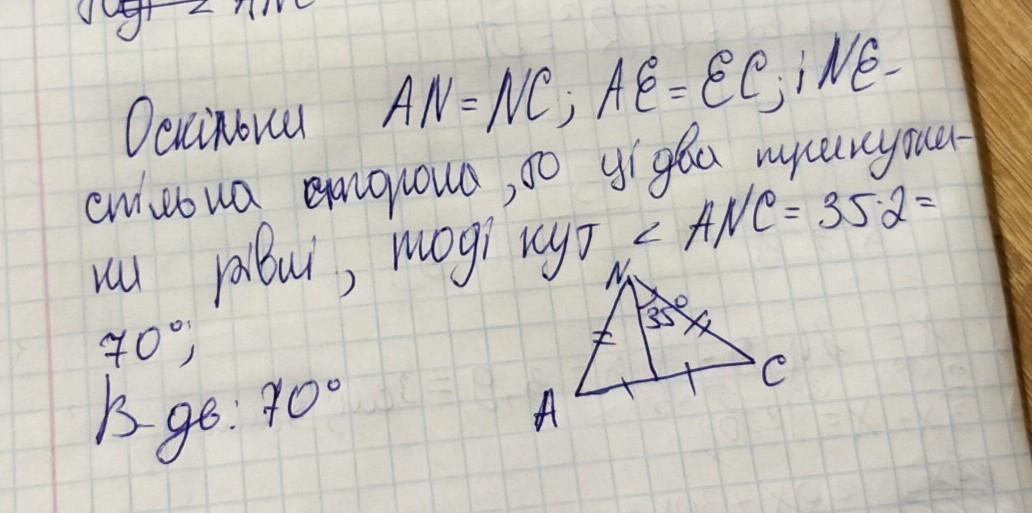 Оскільки AN = NC; AE = EC; і NE -
спільна сторона, то ці два трикутни-
ки рівні, тоді кут < ANC = 35·2 =
70°;
В-дь: 70°
N
35°
A
C